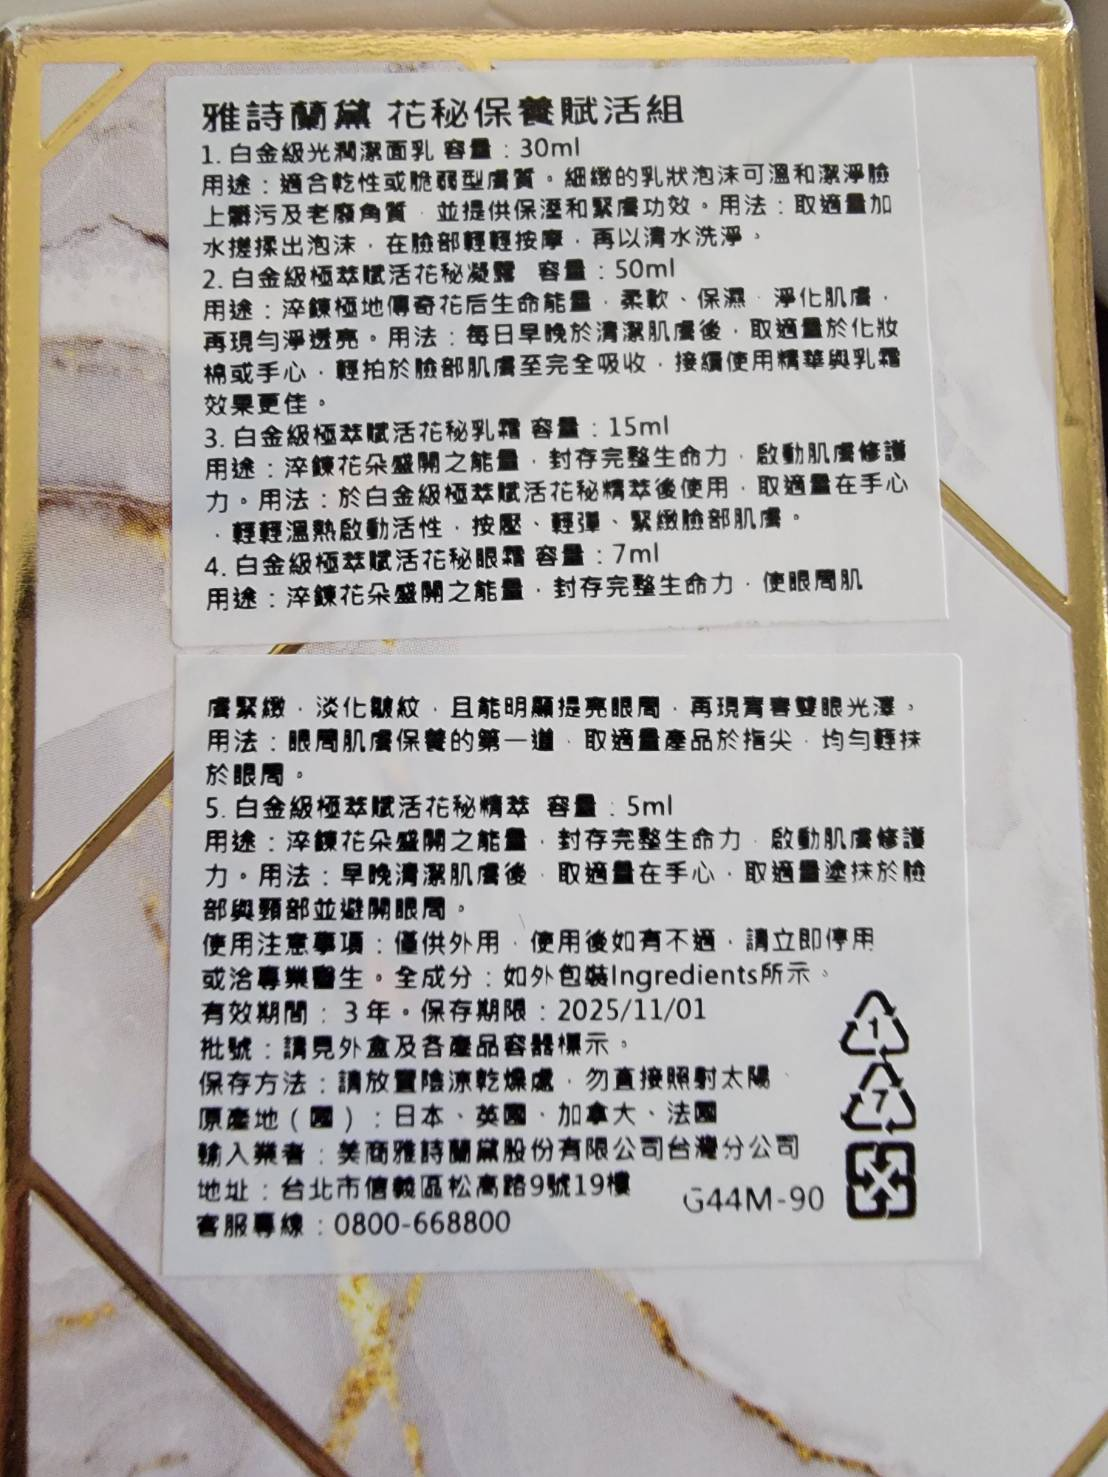 雅詩蘭黛 花秘保養賦活組
1. 白金級光潤潔面乳 容量：30ml
用途：適合乾性或脆弱型膚質。細緻的乳狀泡沫可溫和潔淨臉
上髒污及老廢角質，並提供保溼和緊膚功效。用法：取適量加
水搓揉出泡沫，在臉部輕輕按摩，再以清水洗淨。
2. 白金級極萃賦活花秘凝露 容量：50ml
用途：淬鍊極地傳奇花后生命能量，柔軟、保濕、淨化肌膚，
再現勻淨透亮。用法：每日早晚於清潔肌膚後，取適量於化妝
棉或手心，輕拍於臉部肌膚至完全吸收，接續使用精華與乳霜
效果更佳。
3. 白金級極萃賦活花秘乳霜 容量：15ml
用途：淬鍊花朵盛開之能量，封存完整生命力，啟動肌膚修護
力。用法：於白金級極萃賦活花秘精萃後使用，取適量在手心
，輕輕溫熱啟動活性，按壓、輕彈、緊緻臉部肌膚。
4. 白金級極萃賦活花秘眼霜 容量：7ml
用途：淬鍊花朵盛開之能量，封存完整生命力，使眼周肌
膚緊緻，淡化皺紋，且能明顯提亮眼周，再現青春雙眼光澤。
用法：眼周肌膚保養的第一道，取適量產品於指尖，均勻輕抹
於眼周。
5. 白金級極萃賦活花秘精萃 容量：5ml
用途：淬鍊花朵盛開之能量，封存完整生命力，啟動肌膚修護
力。用法：早晚清潔肌膚後，取適量在手心，取適量塗抹於臉
部與頸部並避開眼周。
使用注意事項：僅供外用，使用後如有不適，請立即停用
或洽專業醫生。全成分：如外包裝Ingredients所示。
有效期間：3年。保存期限：2025/11/01
批號：請見外盒及各產品容器標示。
保存方法：請放置陰涼乾燥處，勿直接照射太陽、
原產地（國）：日本、英國、加拿大、法國
輸入業者：美商雅詩蘭黛股份有限公司台灣分公司
地址：台北市信義區松高路9號19樓
G44M-90
客服專線：0800-668800
1
7